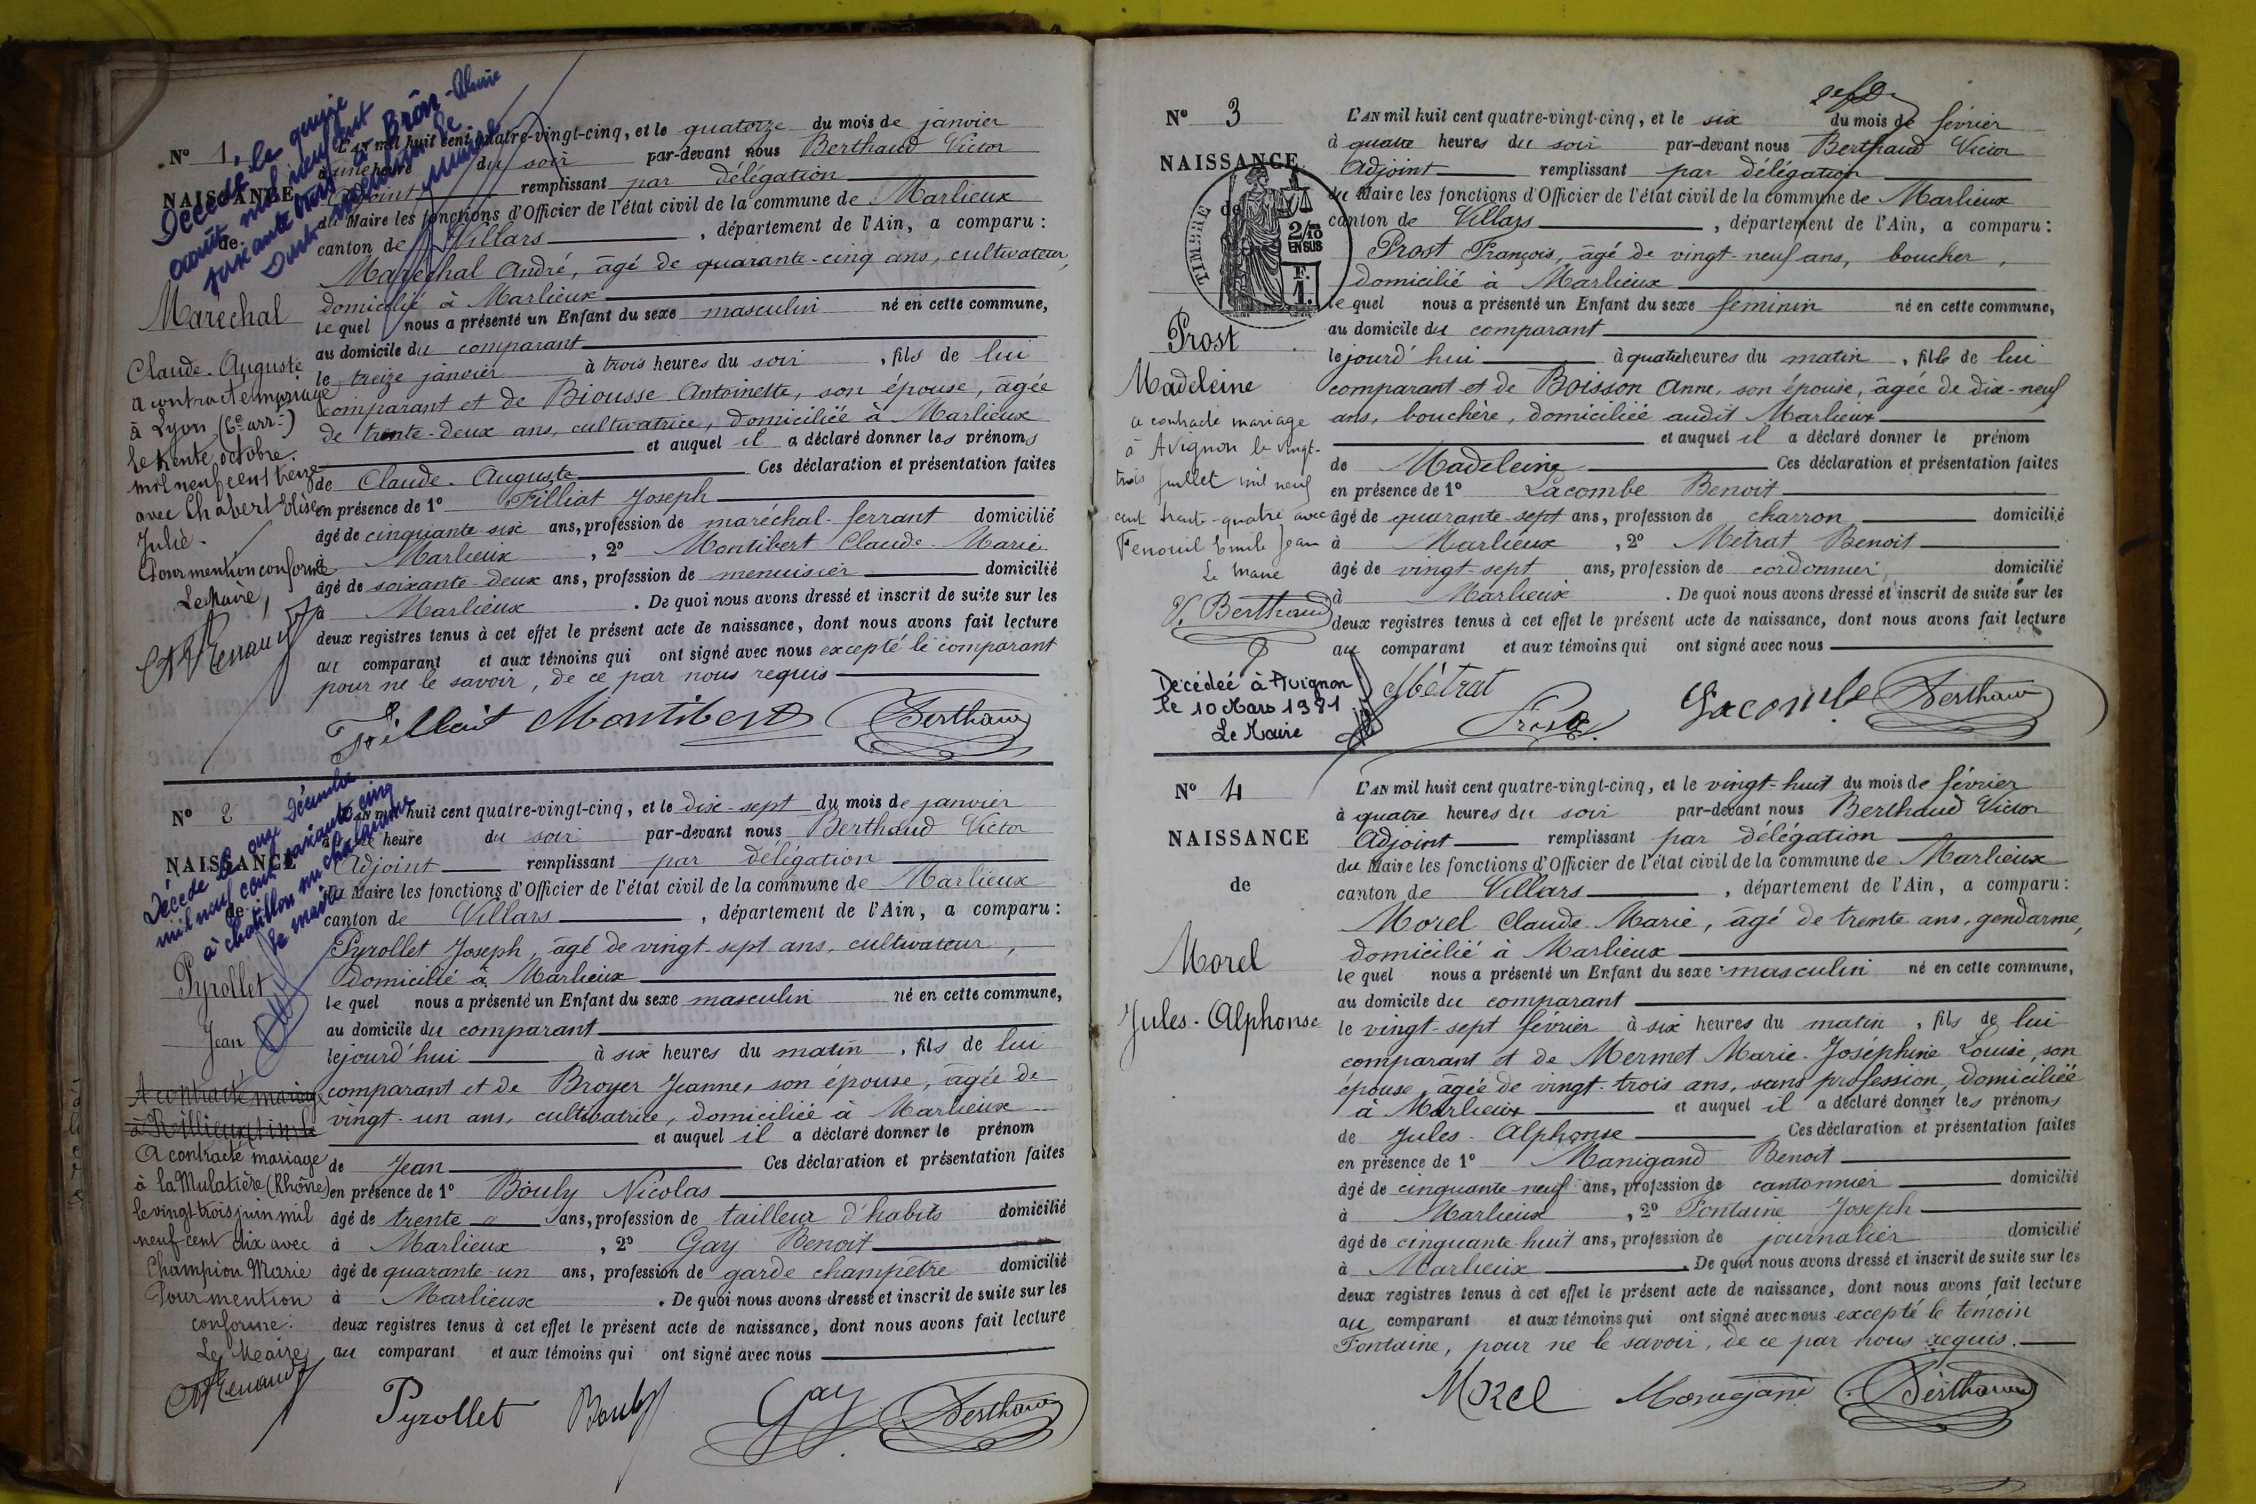 Décédé le quinze
août mil neuf cent
soixante trois à Brôn-
Nº 1
NAISSANCE
de
Maréchal
Claude-Auguste
a contracté mariage
à Lyon (6e arr.t)
le trente octobre
mil neuf cent treize
avec Chabert Elise
Julie.
Pour mention conforme
Le Maire,
L'AN mil huit cent quatre-vingt-cinq, et le quatorze du mois de janvier
à une heure du soir par-devant nous Berthaud Victor
Adjoint remplissant par délégation
du Maire les fonctions d'Officier de l'état civil de la commune de Marlieux
canton de Villars, département de l'Ain, a comparu :
Maréchal André, âgé de quarante-cinq ans, cultivateur,
domicilié à Marlieux
lequel nous a présenté un Enfant du sexe masculin né en cette commune,
au domicile du comparant
le treize janvier à trois heures du soir, fils de lui
comparant et de Biousse Antoinette, son épouse, âgée
de trente-deux ans, cultivatrice, domiciliée à Marlieux
et auquel il a déclaré donner les prénoms
de Claude-Auguste Ces déclaration et présentation faites
en présence de 1º Filliat Joseph
âgé de cinquante six ans, profession de maréchal-ferrant domicilié
à Marlieux, 2º Montibert Claude-Marie
âgé de soixante-deux ans, profession de menuisier domicilié
à Marlieux. De quoi nous avons dressé et inscrit de suite sur les
deux registres tenus à cet effet le présent acte de naissance, dont nous avons fait lecture
au comparant et aux témoins qui ont signé avec nous excepté le comparant
pour ne le savoir, de ce par nous requis
Filliat Montibert Berthaud
Décédé le onze Décembre
mil neuf cent soixante cinq
à chatillon sur chalaronne
le maire
Nº 2
NAISSANCE
de
Pyrollet
Jean
A contracté mariage
à Rillieux
A contracté mariage
à la Mulatière (Rhône)
le vingt trois juin mil
neuf cent dix avec
Champion Marie
Pour mention
conforme.
Le Maire,
L'AN mil huit cent quatre-vingt-cinq, et le dix-sept du mois de janvier
à une heure du soir par-devant nous Berthaud Victor
Adjoint remplissant par délégation
du Maire les fonctions d'Officier de l'état civil de la commune de Marlieux
canton de Villars, département de l'Ain, a comparu :
Pyrollet Joseph, âgé de vingt-sept ans, cultivateur,
domicilié à Marlieux
lequel nous a présenté un Enfant du sexe masculin né en cette commune,
au domicile du comparant
lejourd'hui à six heures du matin, fils de lui
comparant et de Broyer Jeanne, son épouse, âgée de
vingt-un ans, cultivatrice, domiciliée à Marlieux
et auquel il a déclaré donner le prénom
de Jean Ces déclaration et présentation faites
en présence de 1º Bouly Nicolas
âgé de trente ans, profession de tailleur d'habits domicilié
à Marlieux, 2º Gay Benoit
âgé de quarante-un ans, profession de garde champêtre domicilié
à Marlieux. De quoi nous avons dressé et inscrit de suite sur les
deux registres tenus à cet effet le présent acte de naissance, dont nous avons fait lecture
au comparant et aux témoins qui ont signé avec nous
Pyrollet Bouly Gay Berthaud
Nº 3
NAISSANCE
de
TIMBRE
2/10
EN SUS
F.
1.
Prost
Madeleine
a contracté mariage
à Avignon le vingt-
trois juillet mil neuf
cent trente-quatre avec
Fenouil Emile Jean
Le Maire
V. Berthaud
Décédée à Avignon
le 10 Mars 1981
Le Maire
L'AN mil huit cent quatre-vingt-cinq, et le six du mois de février
à quatre heures du soir par-devant nous Berthaud Victor
Adjoint remplissant par délégation
du Maire les fonctions d'Officier de l'état civil de la commune de Marlieux
canton de Villars, département de l'Ain, a comparu :
Prost François, âgé de vingt-neuf ans, boucher,
domicilié à Marlieux
lequel nous a présenté un Enfant du sexe féminin né en cette commune,
au domicile du comparant
lejourd'hui à quatre heures du matin, fille de lui
comparant et de Boisson Anne, son épouse, âgée de dix-neuf
ans, bouchère, domiciliée audit Marlieux
et auquel il a déclaré donner le prénom
de Madeleine Ces déclaration et présentation faites
en présence de 1º Lacombe Benoit
âgé de quarante-sept ans, profession de charron domicilié
à Marlieux, 2º Métrat Benoit
âgé de vingt-sept ans, profession de cordonnier, domicilié
à Marlieux. De quoi nous avons dressé et inscrit de suite sur les
deux registres tenus à cet effet le présent acte de naissance, dont nous avons fait lecture
au comparant et aux témoins qui ont signé avec nous
Métrat Prost Lacombe Berthaud
Nº 4
NAISSANCE
de
Morel
Jules-Alphonse
L'AN mil huit cent quatre-vingt-cinq, et le vingt-huit du mois de février
à quatre heures du soir par-devant nous Berthaud Victor
Adjoint remplissant par délégation
du Maire les fonctions d'Officier de l'état civil de la commune de Marlieux
canton de Villars, département de l'Ain, a comparu :
Morel Claude-Marie, âgé de trente ans, gendarme,
domicilié à Marlieux
lequel nous a présenté un Enfant du sexe masculin né en cette commune,
au domicile du comparant
le vingt-sept février à six heures du matin, fils de lui
comparant et de Mermet Marie-Joséphine Louise, son
épouse, âgée de vingt-trois ans, sans profession, domiciliée
à Marlieux et auquel il a déclaré donner les prénoms
de Jules-Alphonse Ces déclaration et présentation faites
en présence de 1º Manigand Benoit
âgé de cinquante neuf ans, profession de cantonnier domicilié
à Marlieux, 2º Fontaine Joseph
âgé de cinquante-huit ans, profession de journalier domicilié
à Marlieux. De quoi nous avons dressé et inscrit de suite sur les
deux registres tenus à cet effet le présent acte de naissance, dont nous avons fait lecture
au comparant et aux témoins qui ont signé avec nous excepté le témoin
Fontaine, pour ne le savoir, de ce par nous requis.
Morel Manigand Berthaud